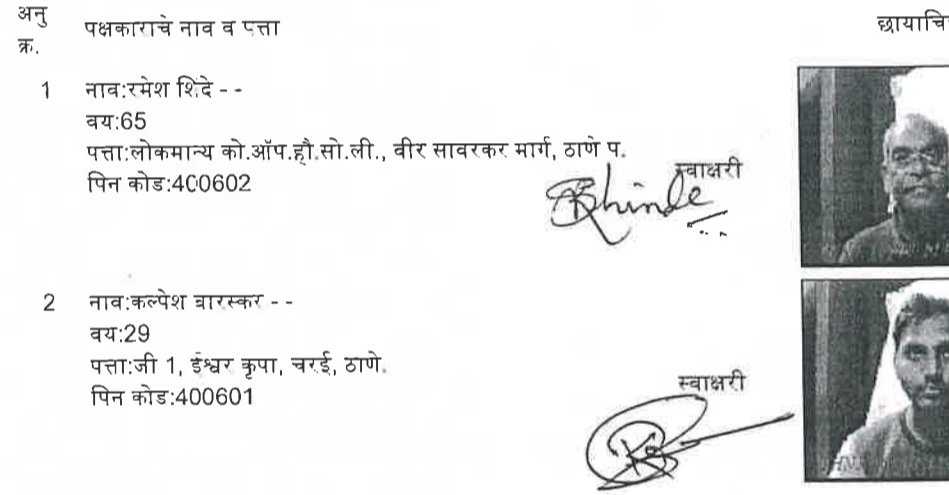 अनु क्र. पक्षकाराचे नाव व पत्ता छायाचि
1 नाव:रमेश शिंदे - -
वय:65
पत्ता:लोकमान्य को.ऑप.हौ.सो.ली., वीर सावरकर मार्ग, ठाणे प.
पिन कोड:400602
स्वाक्षरी
RShinde
2 नाव:कल्पेश बारस्कर - -
वय:29
पत्ता:जी 1, ईश्वर कृपा, चरई, ठाणे.
पिन कोड:400601
स्वाक्षरी